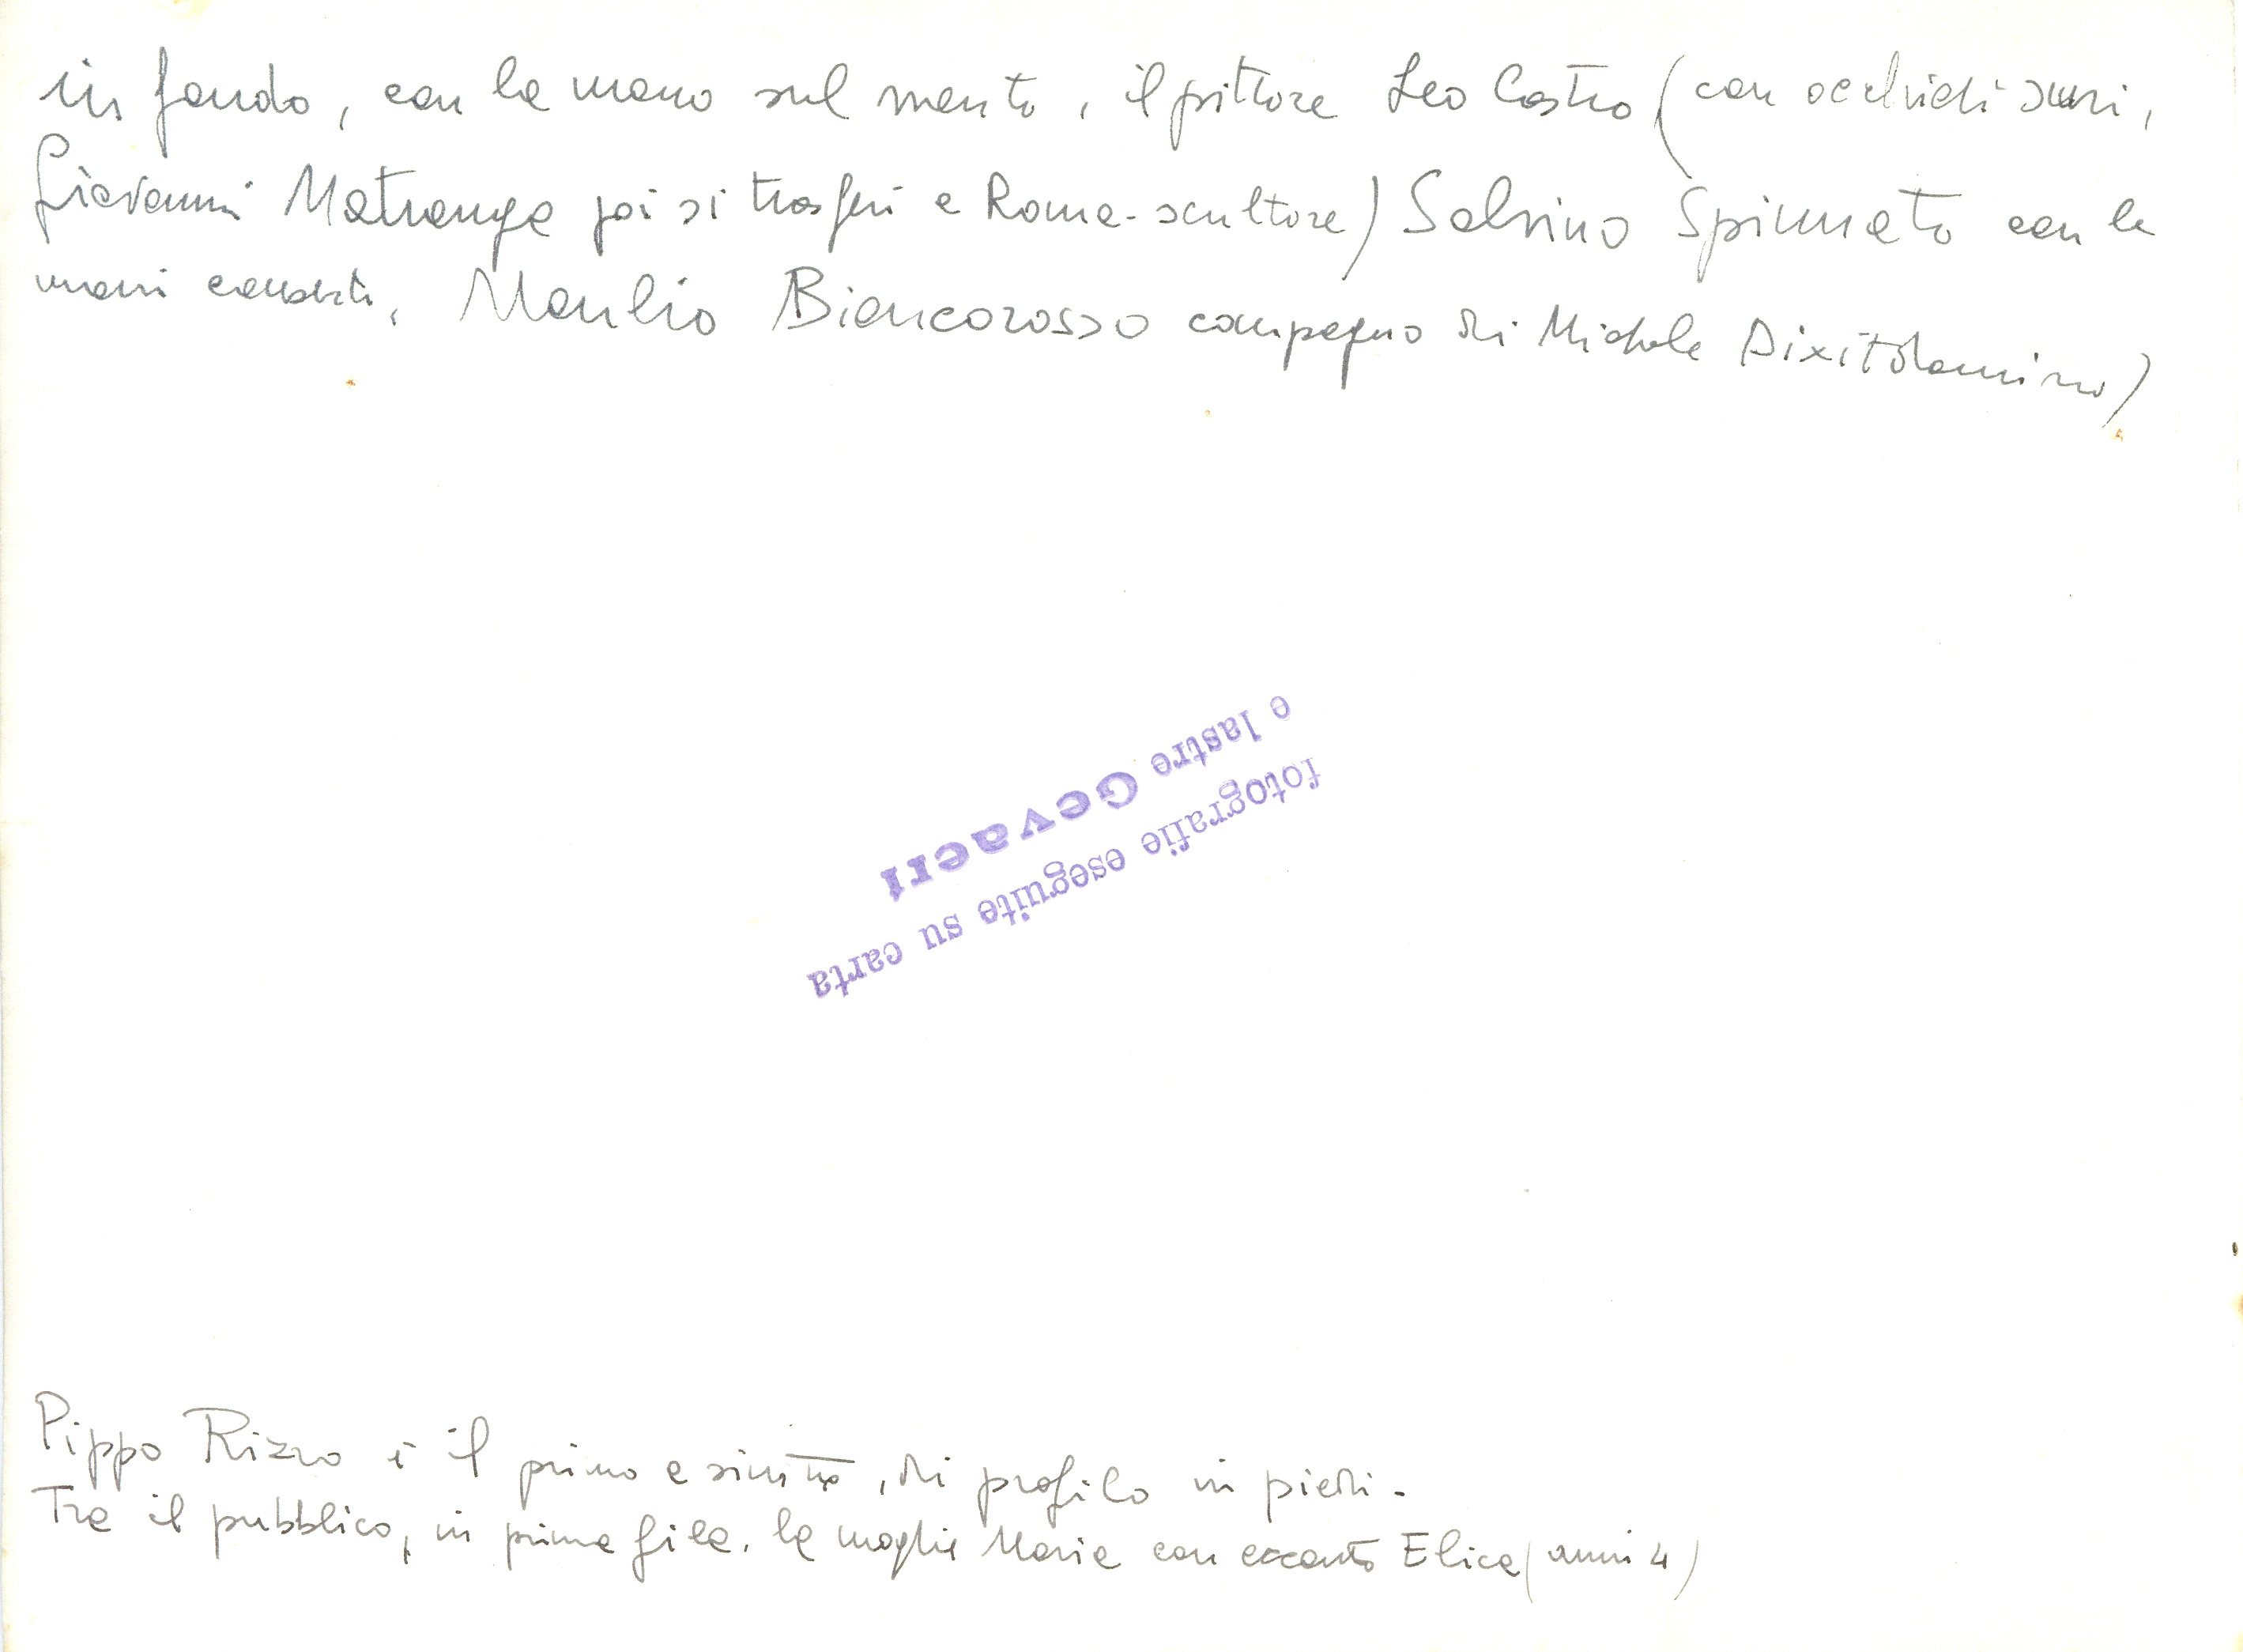 in fondo, con la mano sul mento, il pittore Leo Castro (con occhiali scuri,
Giovanni Matranga poi si trasferì a Roma - scultore) Salvino Spinnato con le
mani conserte, Manlio Biancorosso compagno di Michele Dixitdomino)
e lastre Gevaert
fotografie eseguite su carta
Pippo Rizzo è il primo a sinistra, di profilo in piedi -
Tra il pubblico, in prima fila, la moglie Maria con accanto Elica (anni 4)